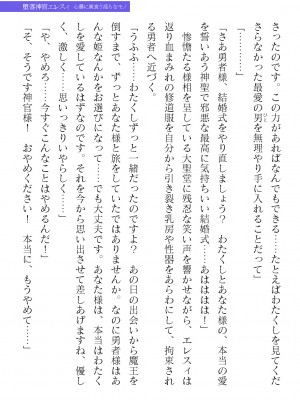 堕落神官エレスィ　心躍に厭食り堕ちたモノ
さったのです。この力があればなんでもできる……たとえばわたくしを見てくだ
さらなかった最愛の男を無理やり手に入れることだって」
「さあ勇者様、結婚式をやり直しましょう？　わたくしとあなた様の、本当の愛
を誓いあう神聖で邪悪な最高に気持ちいい結婚式……あははは！」
　惨憺たる様相を呈している大聖堂に残忍な笑い声を響かせながら、エレスィは
返り血まみれの修道服を自分から引き裂き乳房や性器をあらわにして、拘束され
る勇者へ近づく。
「うふふ……わたくしずっと一緒だったのですよ？　あの日の出会いから魔王を
倒すまで、ずっとあなた様と旅をしていたではありませんか。なのに勇者様はあ
んな姫なんかをお選びになって……でも大丈夫です。あなた様は、本当はわたく
しを愛しているはずなのです。それを今から思い出させて差しあげますね、優し
く、激しく……思いっきりいやらしく……」
「や、やめろ……今すぐこんなことはやめるんだ！」
「そ、そうです神官様！　おやめください！　本当に、もうやめて……」